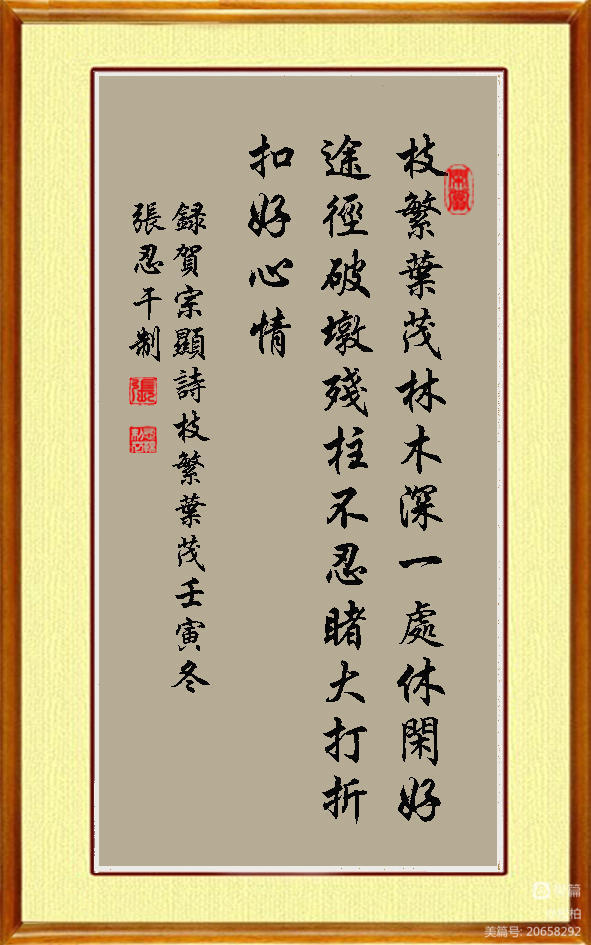 枝繁葉茂林木深一處休閑好
途徑破墩殘柱不忍睹大打折
扣好心情
録賀宗顯詩枝繁葉茂壬寅冬
張忍干制
張
美篇号: 20658292